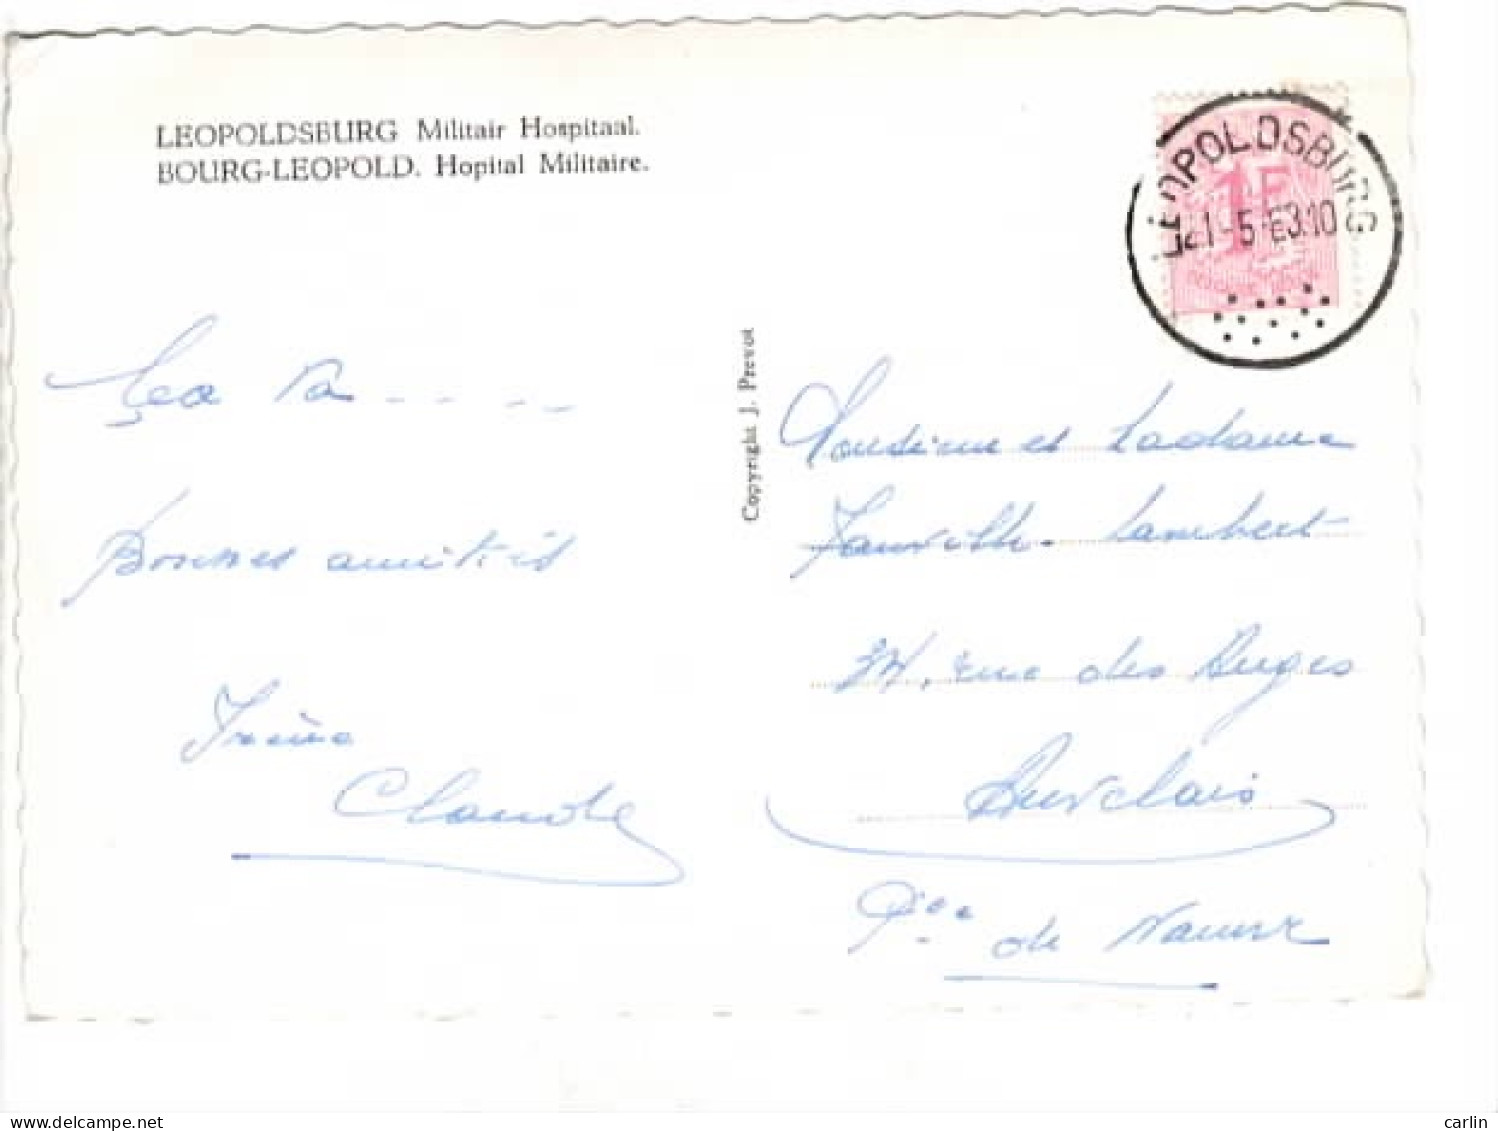 LEOPOLDSBURG Militair Hospitaal.
BOURG-LEOPOLD. Hopital Militaire.
LEOPOLDSBURG
21-5-63.10
1F
Copyright J. Prevot
Bonnes amitiés
Irène
Claude
Monsieur et Madame
Lambert
rue des Auges
Auvelais
Pce de Namur
delcampe.net
carlin